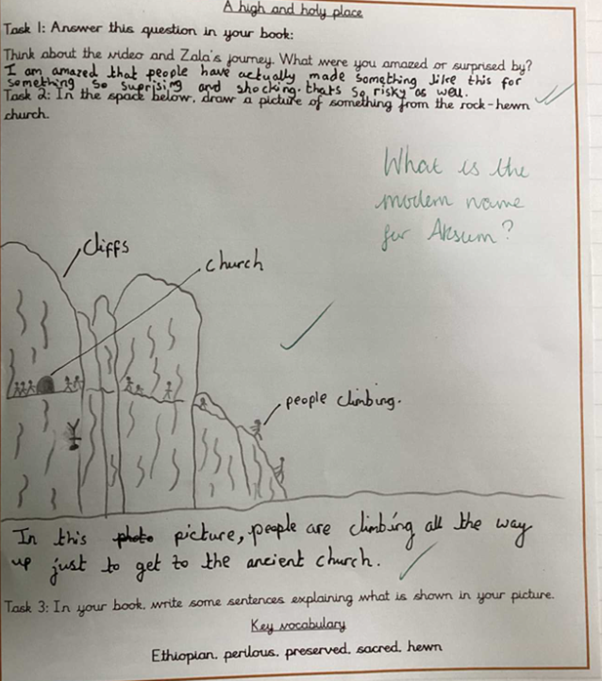 A high and holy place
Task 1: Answer this question in your book:
Think about the video and Zala's journey. What were you amazed or surprised by?
I am amazed that people have actually made something like this for
something so suprising and shocking. thats so risky as well.
Task 2: In the space below, draw a picture of something from the rock-hewn
church.
What is the
modern name
for Aksum?
cliffs
church
people climbing.
In this photo picture, people are climbing all the way
up just to get to the ancient church.
Task 3: In your book, write some sentences explaining what is shown in your picture.
Key vocabulary
Ethiopian, perilous, preserved, sacred, hewn